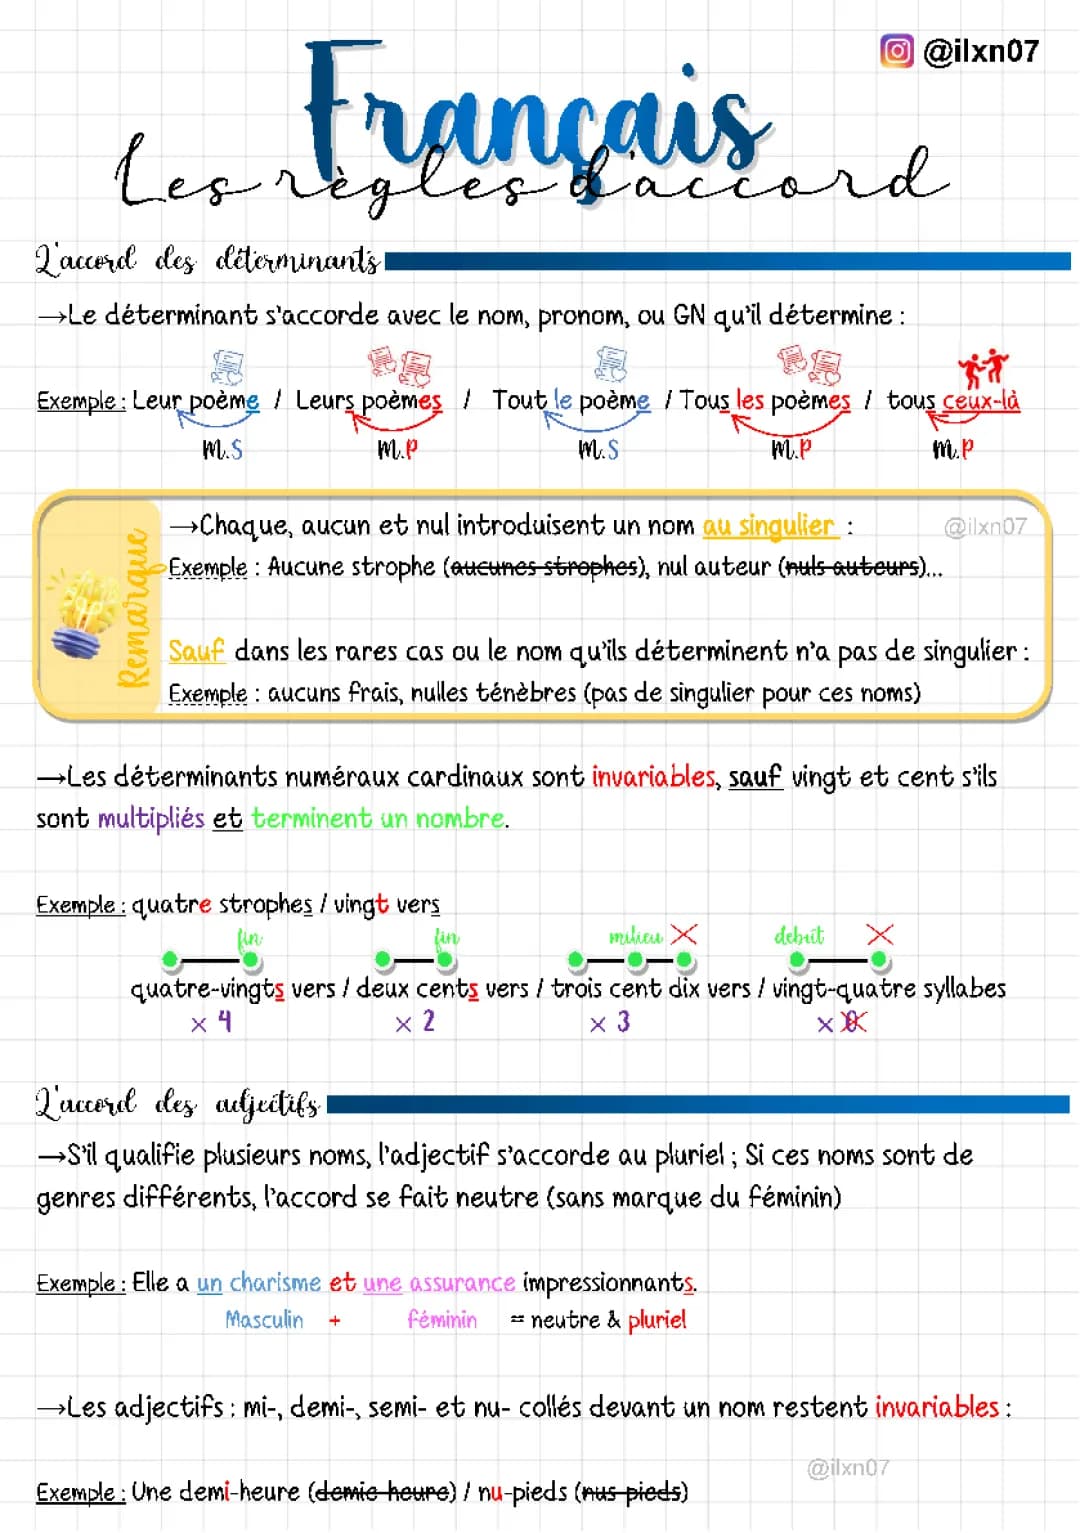 @ilxn07
Français
Les règles d'accord
L'accord des déterminants
→Le déterminant s'accorde avec le nom, pronom, ou GN qu'il détermine :
Exemple : Leur poème / Leurs poèmes / Tout le poème / Tous les poèmes / tous ceux-là
m.S m.P m.S m.P m.P
Remarque
→Chaque, aucun et nul introduisent un nom au singulier :
@ilxn07
Exemple : Aucune strophe (aucunes strophes), nul auteur (nuls auteurs)...
Sauf dans les rares cas ou le nom qu'ils déterminent n'a pas de singulier :
Exemple : aucuns frais, nulles ténèbres (pas de singulier pour ces noms)
→Les déterminants numéraux cardinaux sont invariables, sauf vingt et cent s'ils
sont multipliés et terminent un nombre.
Exemple : quatre strophes / vingt vers
fin fin milieu debut
quatre-vingts vers / deux cents vers / trois cent dix vers / vingt-quatre syllabes
x 4 x 2 x 3 x 0
L'accord des adjectifs
→S'il qualifie plusieurs noms, l'adjectif s'accorde au pluriel ; Si ces noms sont de
genres différents, l'accord se fait neutre (sans marque du féminin)
Exemple : Elle a un charisme et une assurance impressionnants.
Masculin + féminin = neutre & pluriel
→Les adjectifs : mi-, demi-, semi- et nu- collés devant un nom restent invariables :
@ilxn07
Exemple : Une demi-heure (demie heure) / nu-pieds (nus pieds)